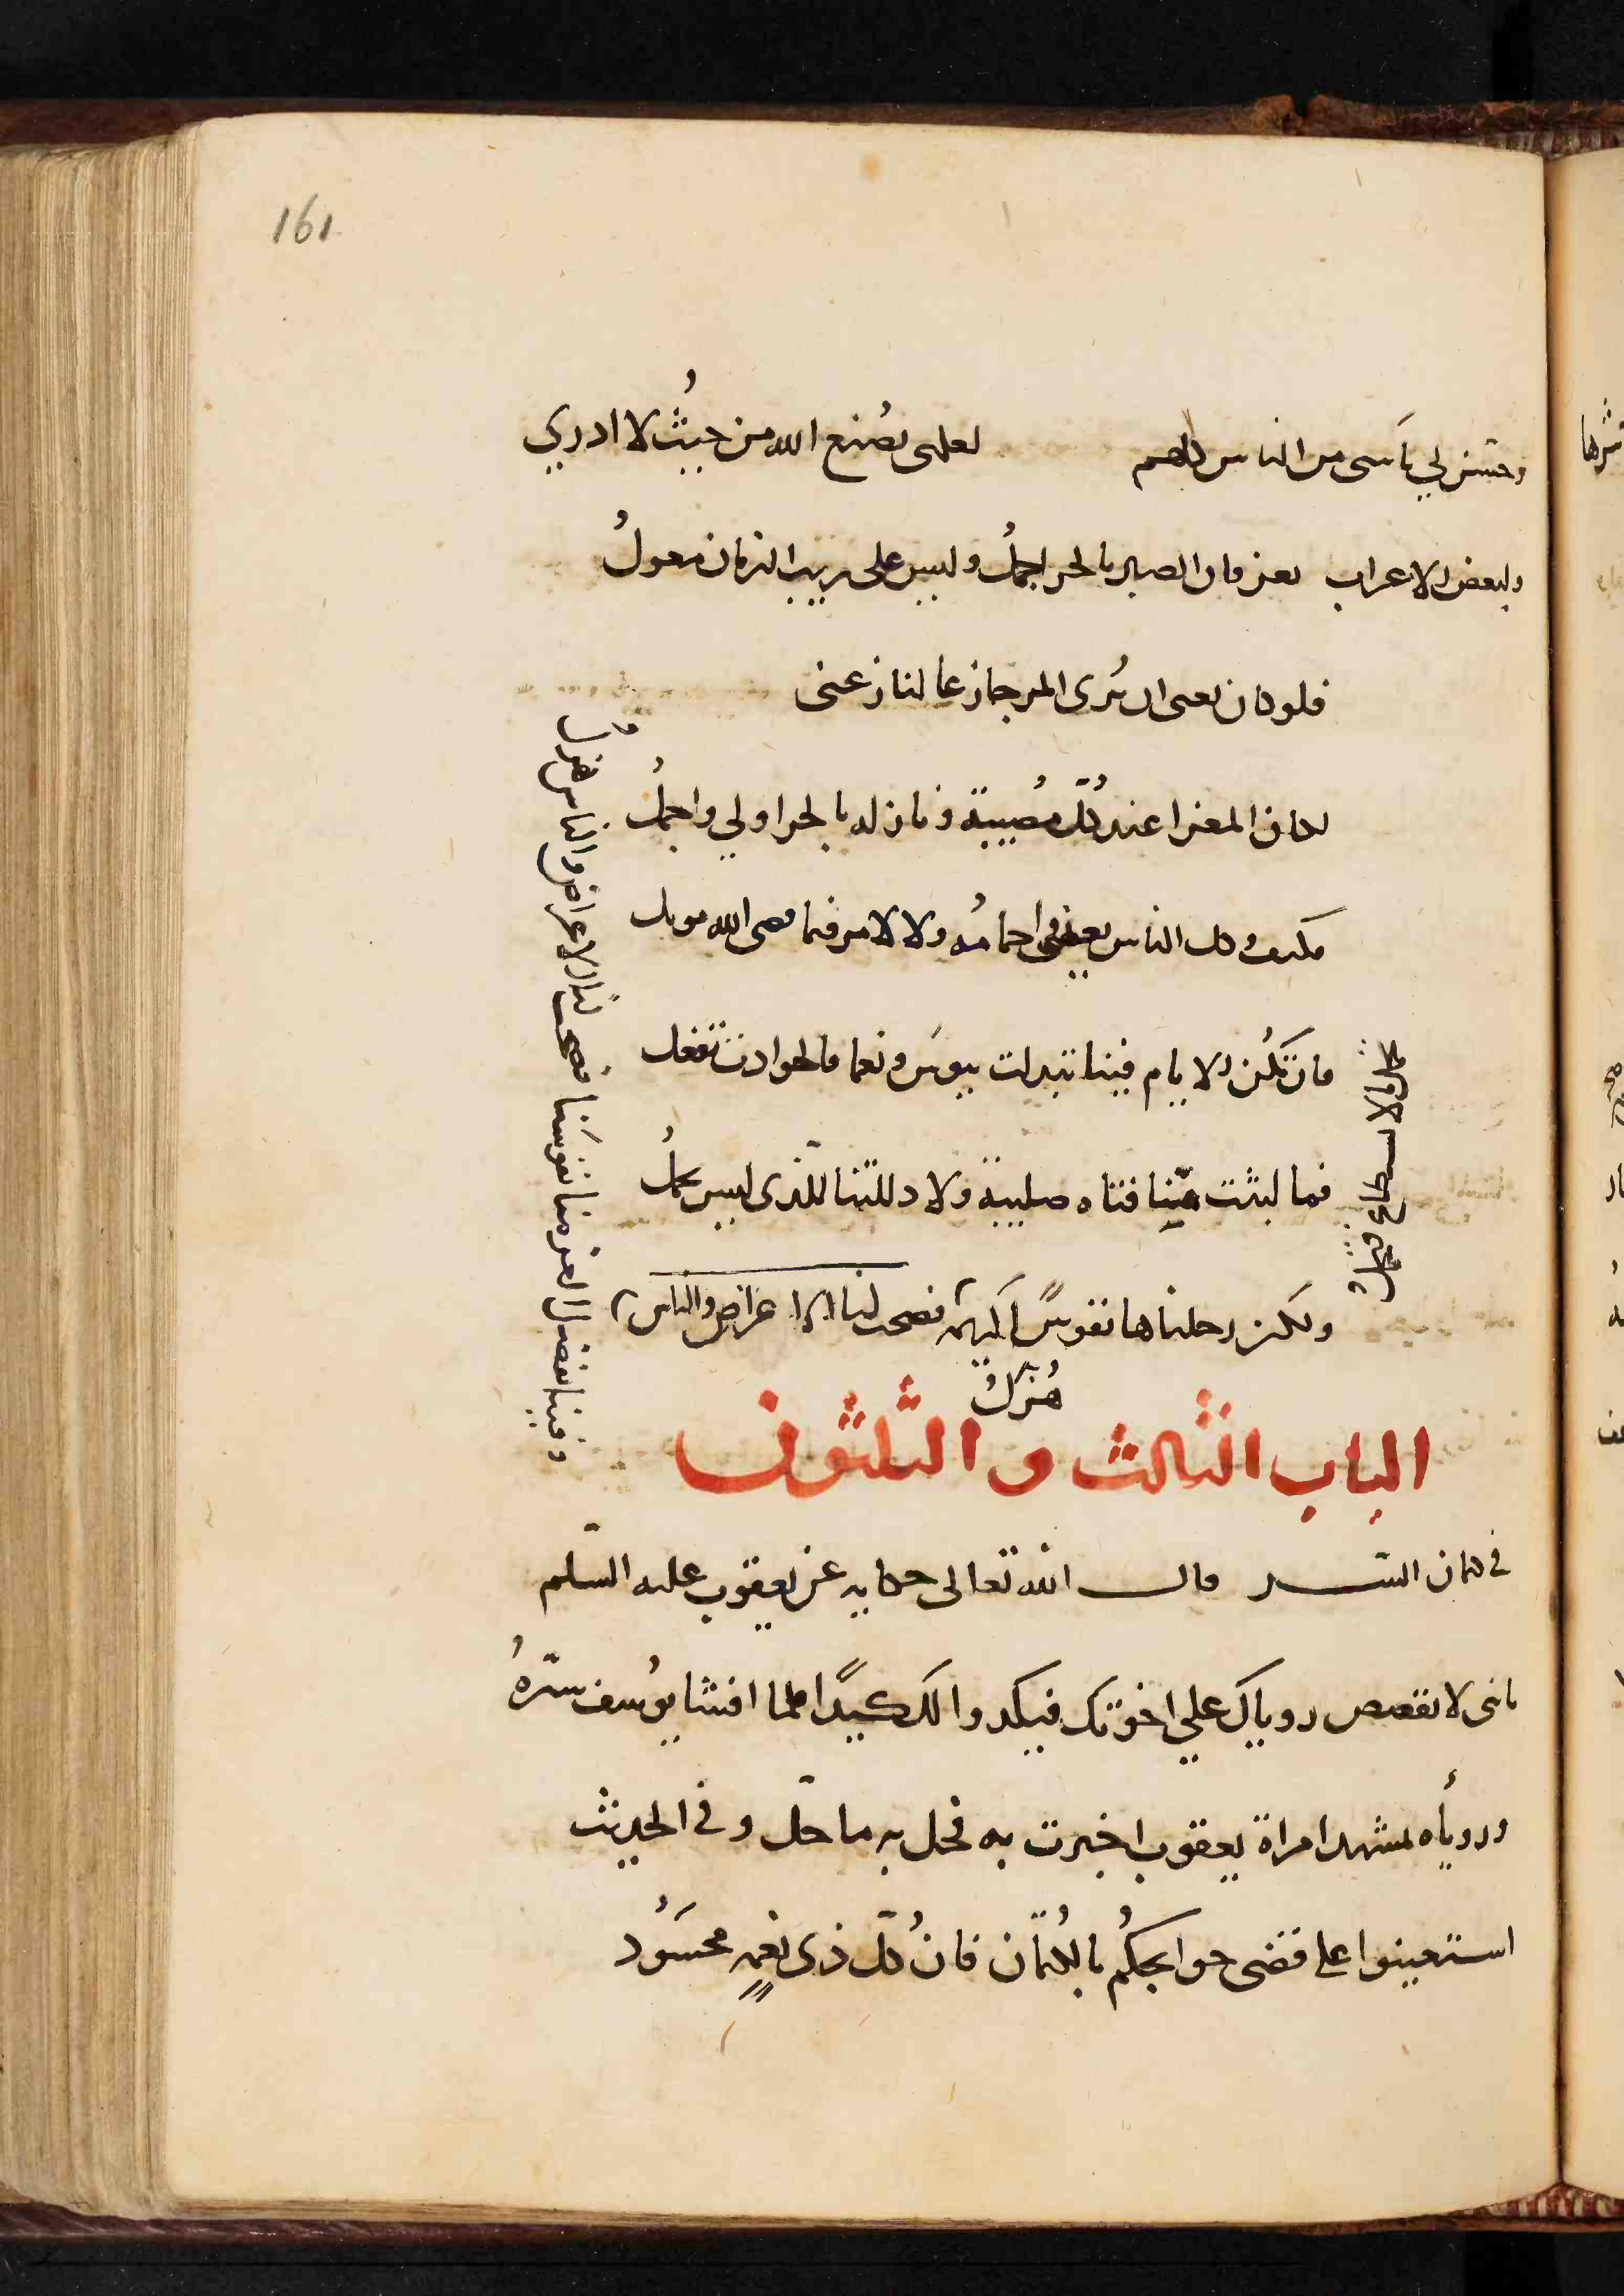 161
وحسن لي يأسى من الناس كلهم لعلمى بصُنع الله من حيثُ لا ادري
ولبعض الاعراب تعز فان الصبر بالحر اجملُ وليس على ريب الزمان معولُ
فلو كان يغنى ان يُرى المر جازعا لنازعنى
لكان العزا عند كُلّ مُصيبة ونازله بالحر اولي واجملُ
فكيف وكل الناس يعنى احمامُه ولا لامر فيما قضى الله مويل
فان تكُن الايام فينا تبدلت ببوسَ ونعما والحوادث تفعل
فما لبثت منّا قناه صليبة ولا دللتنا للّذى ليس يجملُ
ولكن رحلناها نفوسًا كريمة فصحت لنا الاعراض والناس
هُزّلُ
تحمل ما لا يسطاع فتحملُ
وقينا بفضل العز منا نفوسَنا فصحت لنا الاعراض والناس هُزّلُ
الباب الثالث والثلثون
في كتمان السّر قال الله تعالى حكايه عن يعقوب عليه السّلم
يابنى لا تقصص روياك علي اخوتك فيكيدوا لك كيدًا فلما افشا يوُسف سرّهُ
وروياه لمشهد امراة يعقوب اخبرت به فحل به ما حلّ وفي الحديث
استعينوا على قضى حوايجكُم بالكُتمان فان كُلّ ذى نعمةٍ محسَوُد